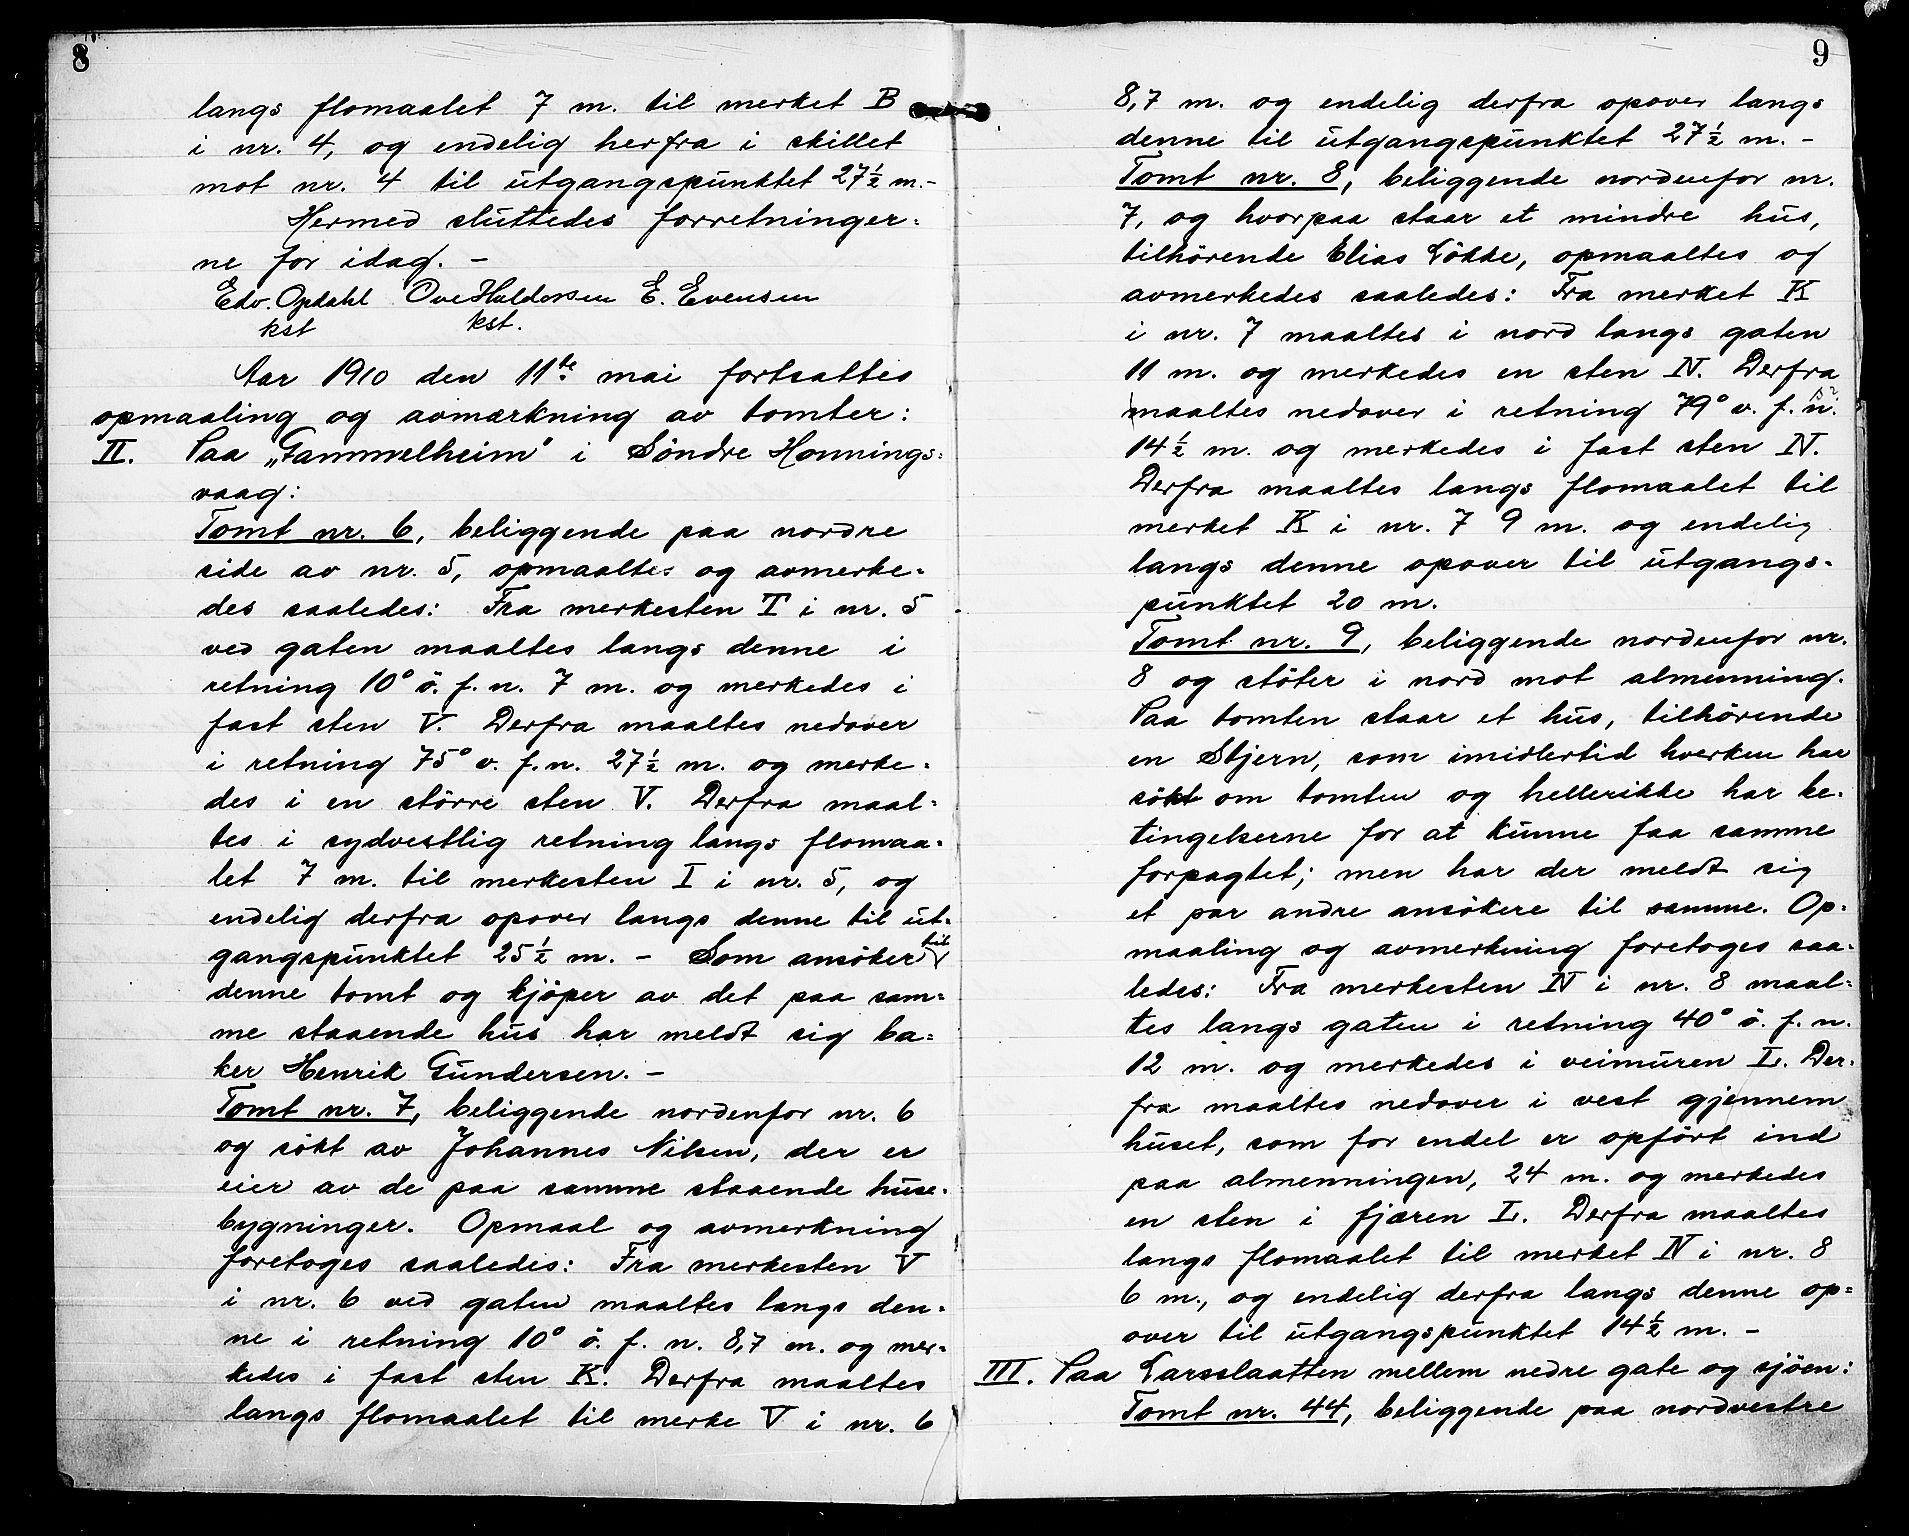 8
langs flomaalet 7 m. til merket B
i nr. 4, og endelig herfra i skillet
mot nr. 4 til utgangspunktet 27½ m.-
Hermed sluttedes forretninger:
ne for idag. -
Edv. Opdahl Ove Haldorsen E. Evensen
kst kst.
Aar 1910 den 11te mai fortsattes
opmaaling og avmærkning av tomter:
II. Paa „Gammelheim" i Söndre Honnings:
vaag:
Tomt nr. 6, beliggende paa nordre
side av nr. 5, opmaaltes og avmerke-
des saaledes: Fra merkesten T i nr. 5
ved gaten maaltes langs denne i
retning 10° ö. f. n. 7 m. og merkedes i
fast sten V. Derfra maaltes nedover
i retning 75° v. f. n. 27½ m. og merke-
des i en större sten V. Derfra maal-
tes i sydvestlig retning langs flomaa-
let 7 m. til merkesten I i nr. 5, og
endelig derfra opover langs denne til ut-
gangspunktet 25½ m. - Som ansöker til
denne tomt og kjöper av det paa sam-
me staaende hus har meldt sig ba-
ker Henrik Gundersen. -
Tomt nr. 7, beliggende nordenfor nr. 6
og sökt av Johannes Nilsen, der er
eier av de paa samme staaende huse-
bygninger. Opmaal og avmerkning
foretoges saaledes: Fra merkesten V
i nr. 6 ved gaten maaltes langs den-
ne i retning 10° ö. f. n. 8,7 m. og mer-
kedes i fast sten K. Derfra maaltes
langs flomaalet til merke V i nr. 6
9
8,7 m. og endelig derfra opover langs
denne til utgangspunktet 27½ m. -
Tomt nr. 8, beliggende nordenfor nr.
7, og hvorpaa staar et mindre hus,
tilhörende Elias Lökke, opmaaltes og
avmerkedes saaledes: Fra merket K
i nr. 7 maaltes i nord langs gaten
11 m. og merkedes en sten N. Derfra
maaltes nedover i retning 79° v. f. n.
14½ m. og merkedes i fast sten N.
Derfra maaltes langs flomaalet til
merket K i nr. 7 9 m. og endelig
langs denne opover til utgangs-
punktet 20 m.
Tomt nr. 9, beliggende nordenfor nr.
8 og stöter i nord mot almenning.
Paa tomten staar et hus, tilhörende
en Stjern, som imidlertid hverken har
sökt om tomten og hellerikke har be-
tingelserne for at kunne faa samme
forpagtet; men har der meldt sig
et par andre ansökere til samme. Op-
maaling og avmerkning foretoges saa-
ledes: Fra merkesten N i nr. 8 maal-
tes langs gaten i retning 40° ö. f. n.
12 m. og merkedes i veimuren L. Der-
fra maaltes nedover i vest gjennem
huset, som for endel er opfört ind
paa almenningen, 24 m. og merkedes
en sten i fjæren L. Derfra maaltes
langs flomaalet til merket N i nr. 8
6 m., og endelig derfra langs denne op-
over til utgangspunktet 14½ m. -
III. Paa Larsslaatten mellem nedre gate og sjöen:
Tomt nr. 44, beliggende paa nordvestre